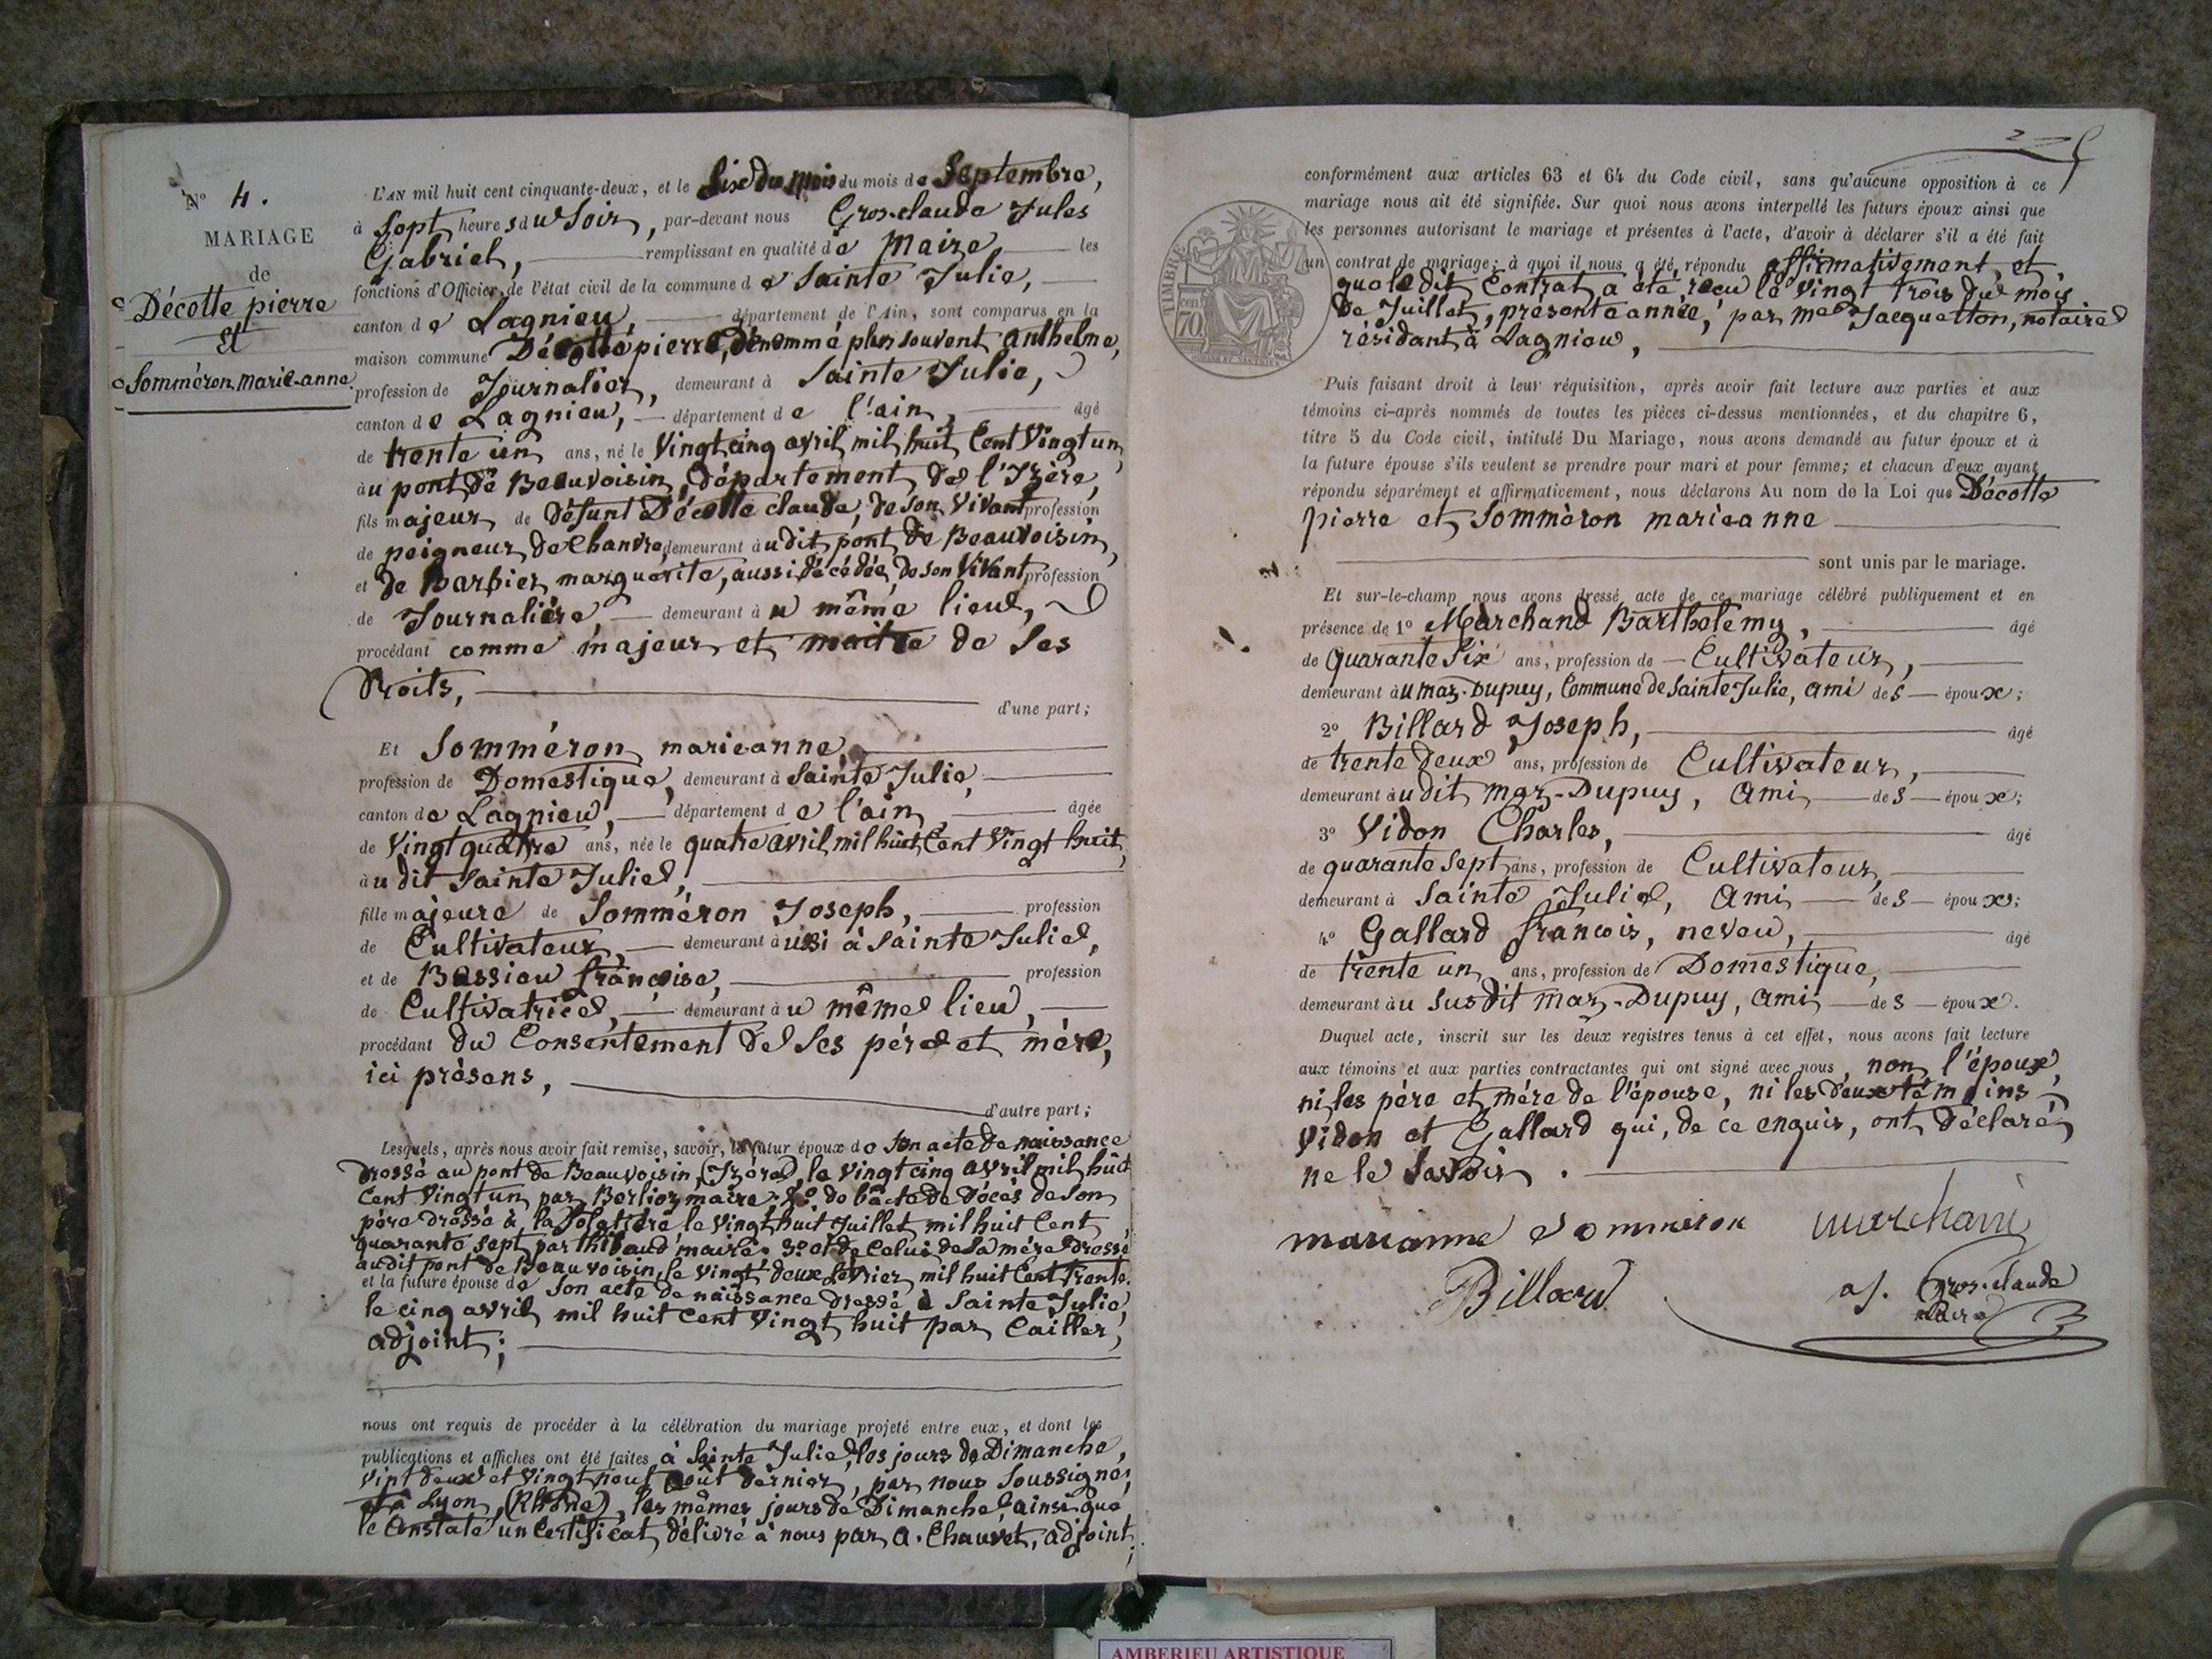 N° 4.
MARIAGE
de
Décotte pierre
Et
Somméron marie-anne
L'AN mil huit cent cinquante-deux, et le Six du mois du mois de Septembre,
à Sept heures du Soir, par-devant nous Gros-claude Jules
Gabriel, remplissant en qualité de Maire, les
fonctions d'Officier de l'état civil de la commune de Sainte Julie,
canton de Lagnieu, département de l'Ain, sont comparus en la
maison commune Décotte pierre, dénommé plus souvent anthelme,
profession de Journalier, demeurant à Sainte Julie,
canton de Lagnieu, département de l'ain, âgé
de trente un ans, né le Vingt cinq avril mil huit Cent Vingt un,
au pont de Beauvoisin, département de l'Izère,
fils majeur de défunt Décotte claude, de son Vivant profession
de peigneur de Chanvre, demeurant audit pont de Beauvoisin,
et de Barbier marguerite, aussi décédée, de son Vivant profession
de Journalière, demeurant au même lieu,
procédant comme majeur et maître de Ses
Droits,
d'une part;
Et Somméron marieanne,
profession de Domestique, demeurant à Sainte Julie,
canton de Lagnieu, département de l'ain, âgée
de Vingt quatre ans, née le quatre avril mil huit Cent Vingt huit,
audit Sainte Julie,
fille majeure de Somméron Joseph, profession
de Cultivateur, demeurant aussi à Sainte Julie,
et de Bassieu françoise, profession
de Cultivatrice, demeurant au même lieu,
procédant du Consentement de Ses père et mère,
ici présens,
d'autre part;
Lesquels, après nous avoir fait remise, savoir, le futur époux de Son acte de naissance
dressé au pont de Beauvoisin, (Izère), le Vingt cinq avril mil huit
Cent Vingt un par Berlioz maire; 2° de l'acte de décès de Son
père dressé à la le Vingt huit Juillet mil huit Cent
quarante sept par thibaud maire. 3° et de Celui de Sa mère dressé
audit pont de Beauvoisin, le vingt deux février mil huit Cent trente.
et la future épouse de Son acte de naissance dressé à Sainte Julie,
le cinq avril mil huit Cent Vingt huit par Cailler,
adjoint;
nous ont requis de procéder à la célébration du mariage projeté entre eux, et dont les
publications et affiches ont été faites à Sainte Julie, les jours de Dimanche,
vint deux et Vingt neuf août dernier, par nous Soussigné;
et à Lyon, (Rhône), les mêmes jours de Dimanche, ainsi que
le Constate un Certificat délivré à nous par a. Chauvet, adjoint;
conformément aux articles 63 et 64 du Code civil, sans qu'aucune opposition à ce
mariage nous ait été signifiée. Sur quoi nous avons interpellé les futurs époux ainsi que
les personnes autorisant le mariage et présentes à l'acte, d'avoir à déclarer s'il a été fait
un contrat de mariage; à quoi il nous a été répondu affirmativement, et
que le dit Contrat a été reçu le Vingt trois du mois
de Juillet, présente année, par me Jacquetton, notaire
résidant à Lagnieu,
TIMBRE
cen. 70
Puis faisant droit à leur réquisition, après avoir fait lecture aux parties et aux
témoins ci-après nommés de toutes les pièces ci-dessus mentionnées, et du chapitre 6,
titre 5 du Code civil, intitulé Du Mariage, nous avons demandé au futur époux et à
la future épouse s'ils veulent se prendre pour mari et pour femme; et chacun d'eux ayant
répondu séparément et affirmativement, nous déclarons Au nom de la Loi que Décotte
pierre et Somméron marieanne
sont unis par le mariage.
Et sur-le-champ nous avons dressé acte de ce mariage célébré publiquement et en
présence de 1° Marchand Barthelemy, âgé
de quarante Six ans, profession de Cultivateur,
demeurant au maz-Dupuy, Commune de Sainte Julie, ami des époux;
2° Billard Joseph, âgé
de trente deux ans, profession de Cultivateur,
demeurant audit maz-Dupuy, ami des époux;
3° Vidon Charles, âgé
de quarante Sept ans, profession de Cultivateur,
demeurant à Sainte Julie, ami des époux;
4° Gallard françois, neveu, âgé
de trente un ans, profession de Domestique,
demeurant au susdit maz-Dupuy, ami des époux.
Duquel acte, inscrit sur les deux registres tenus à cet effet, nous avons fait lecture
aux témoins et aux parties contractantes qui ont signé avec nous, non l'époux,
ni les père et mère de l'épouse, ni les deux témoins
Vidon et Gallard qui, de ce enquis, ont déclaré
ne le Savoir.
marianne Sommeron marchand
Billard
Gros-claude
Maire
AMBERIEU ARTISTIQUE